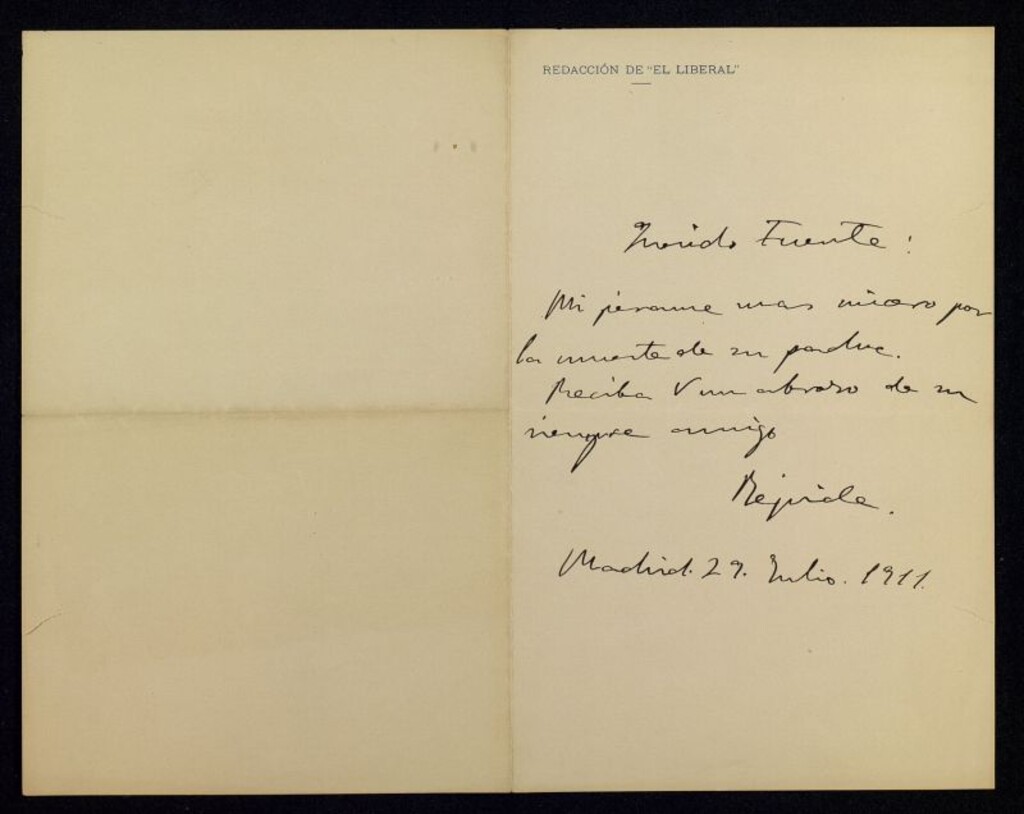 REDACCIÓN DE "EL LIBERAL"
Querido Fuente:
Mi pesame mas sincero por
la muerte de su padre.
Reciba V un abrazo de su
siempre amigo
Répide.
Madrid. 29. Julio. 1911.